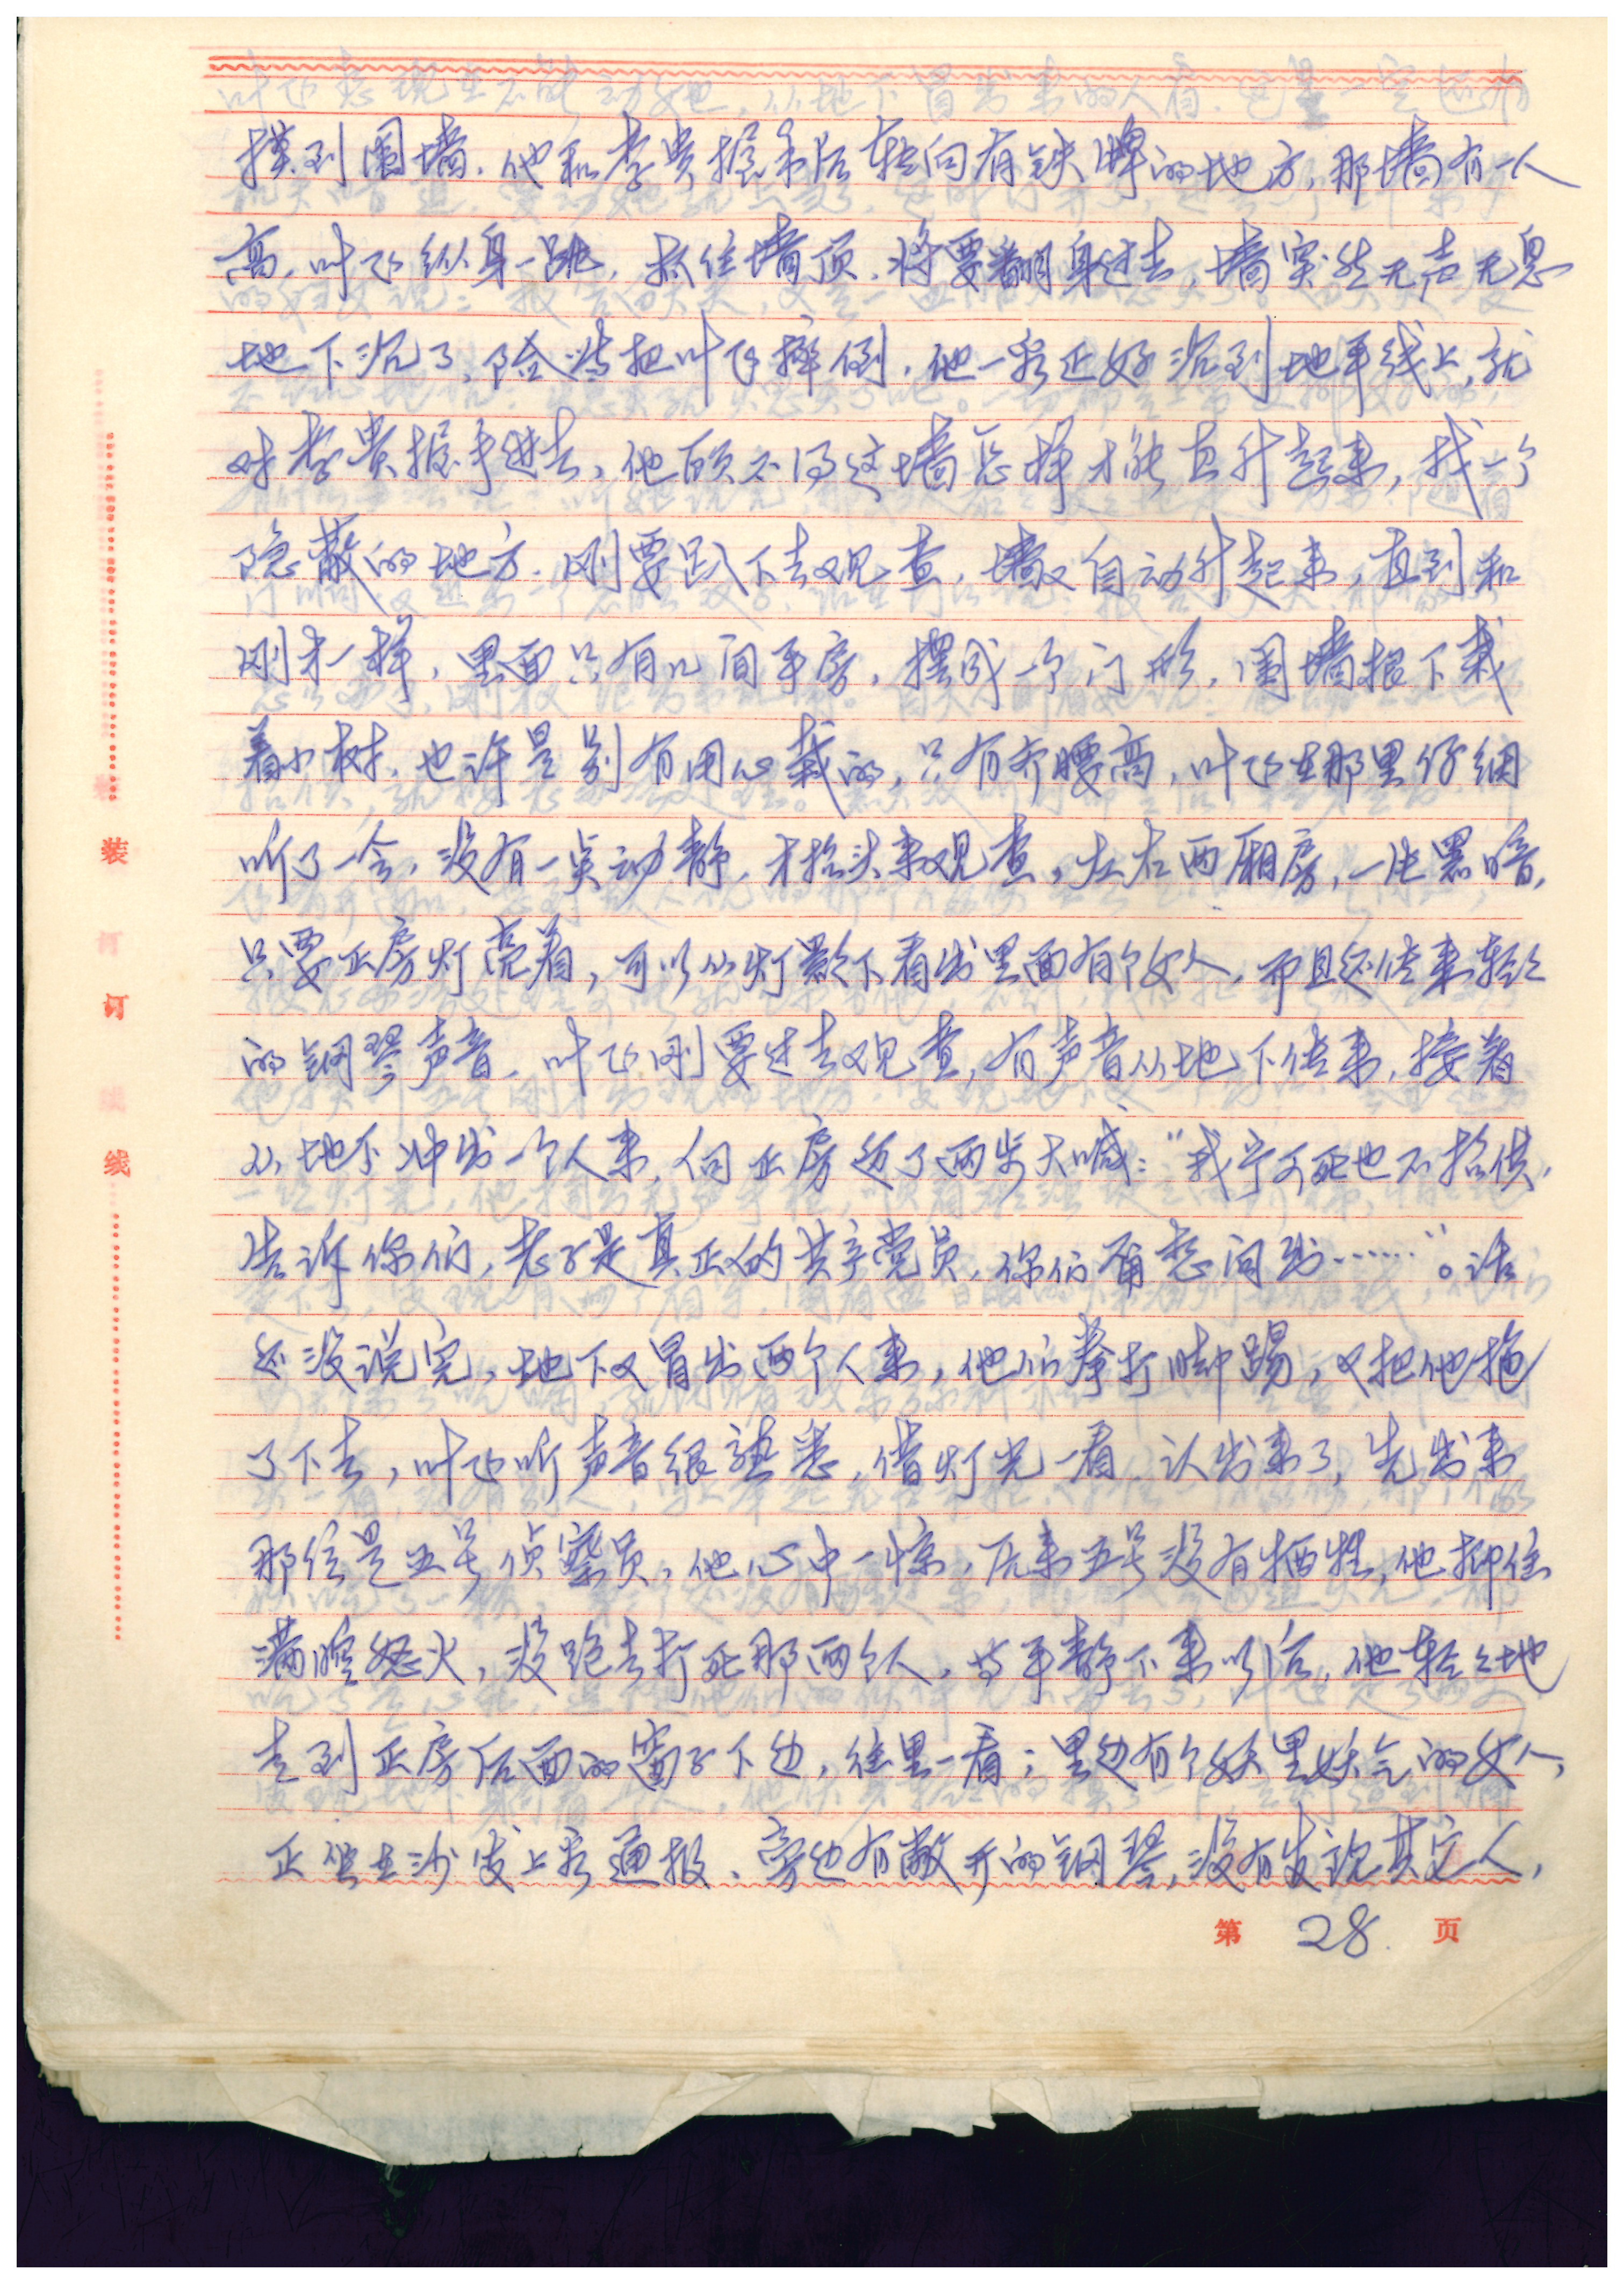 摸到围墙. 他和李贵握手后转向有铁牌的地方, 那墙有一人
高, 叶飞纵身一跳, 抓住墙顶. 将要翻身过去, 墙突然无声无息
地下沉了, 险些把叶飞摔倒. 他一看正好沉到地平线上, 就
对李贵握手进去, 他顾不得这墙怎样才能直升起来, 找一个
隐蔽的地方. 刚要趴下去观查, 墙又自动升起来, 直到和
刚才一样, 里面只有几间平房, 摆成一个门形, 围墙根下栽
着小树, 也许是别有用心栽的, 只有齐腰高, 叶飞在那里仔细
听了一会, 没有一点动静, 才抬头来观查, 左右两厢房, 一片黑暗,
只要正房灯亮着, 可以从灯影下看出里面有个女人, 而且还传来轻々
的钢琴声音. 叶飞刚要过去观查, 有声音从地下传来, 接着
从地下冲出一个人来, 向正房迈了两步大喊: “我宁可死也不招供,
告诉你们, 老子是真正的共产党员, 你们甭想问出……”。话
还没说完, 地下又冒出两个人来, 他们拳打脚踢, 又把他拖
了下去, 叶飞听声音很熟悉, 借灯光一看 认出来了, 先出来
那位是五号侦察员, 他心中一惊, 原来五号没有牺牲, 他抑住
满腔怒火, 没跑去打死那两个人, 等平静下来以后, 他轻々地
走到正房后面的窗子下边, 往里一看; 里边有个妖里妖气的女人,
正坐在沙发上看通报、旁边有敞开的钢琴, 没有发现其它人,
第 28. 页
装
订
线